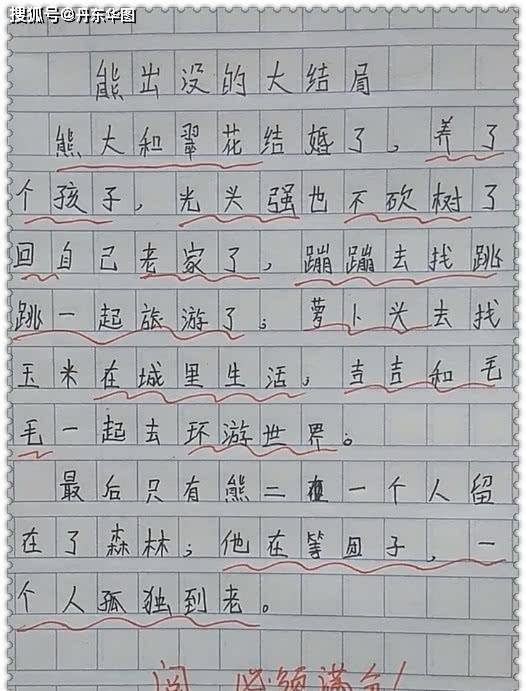 搜狐号@丹东华图
熊出没的大结局
熊大和翠花结婚了，养了
个孩子，光头强也不砍树了
回自己老家了，蹦蹦去找跳
跳一起旅游了；萝卜头去找
玉米在城里生活；吉吉和毛
毛一起去环游世界。
最后只有熊二在一个人留
在了森林；他在等团子，一
个人孤独到老。
阅 必须满分！